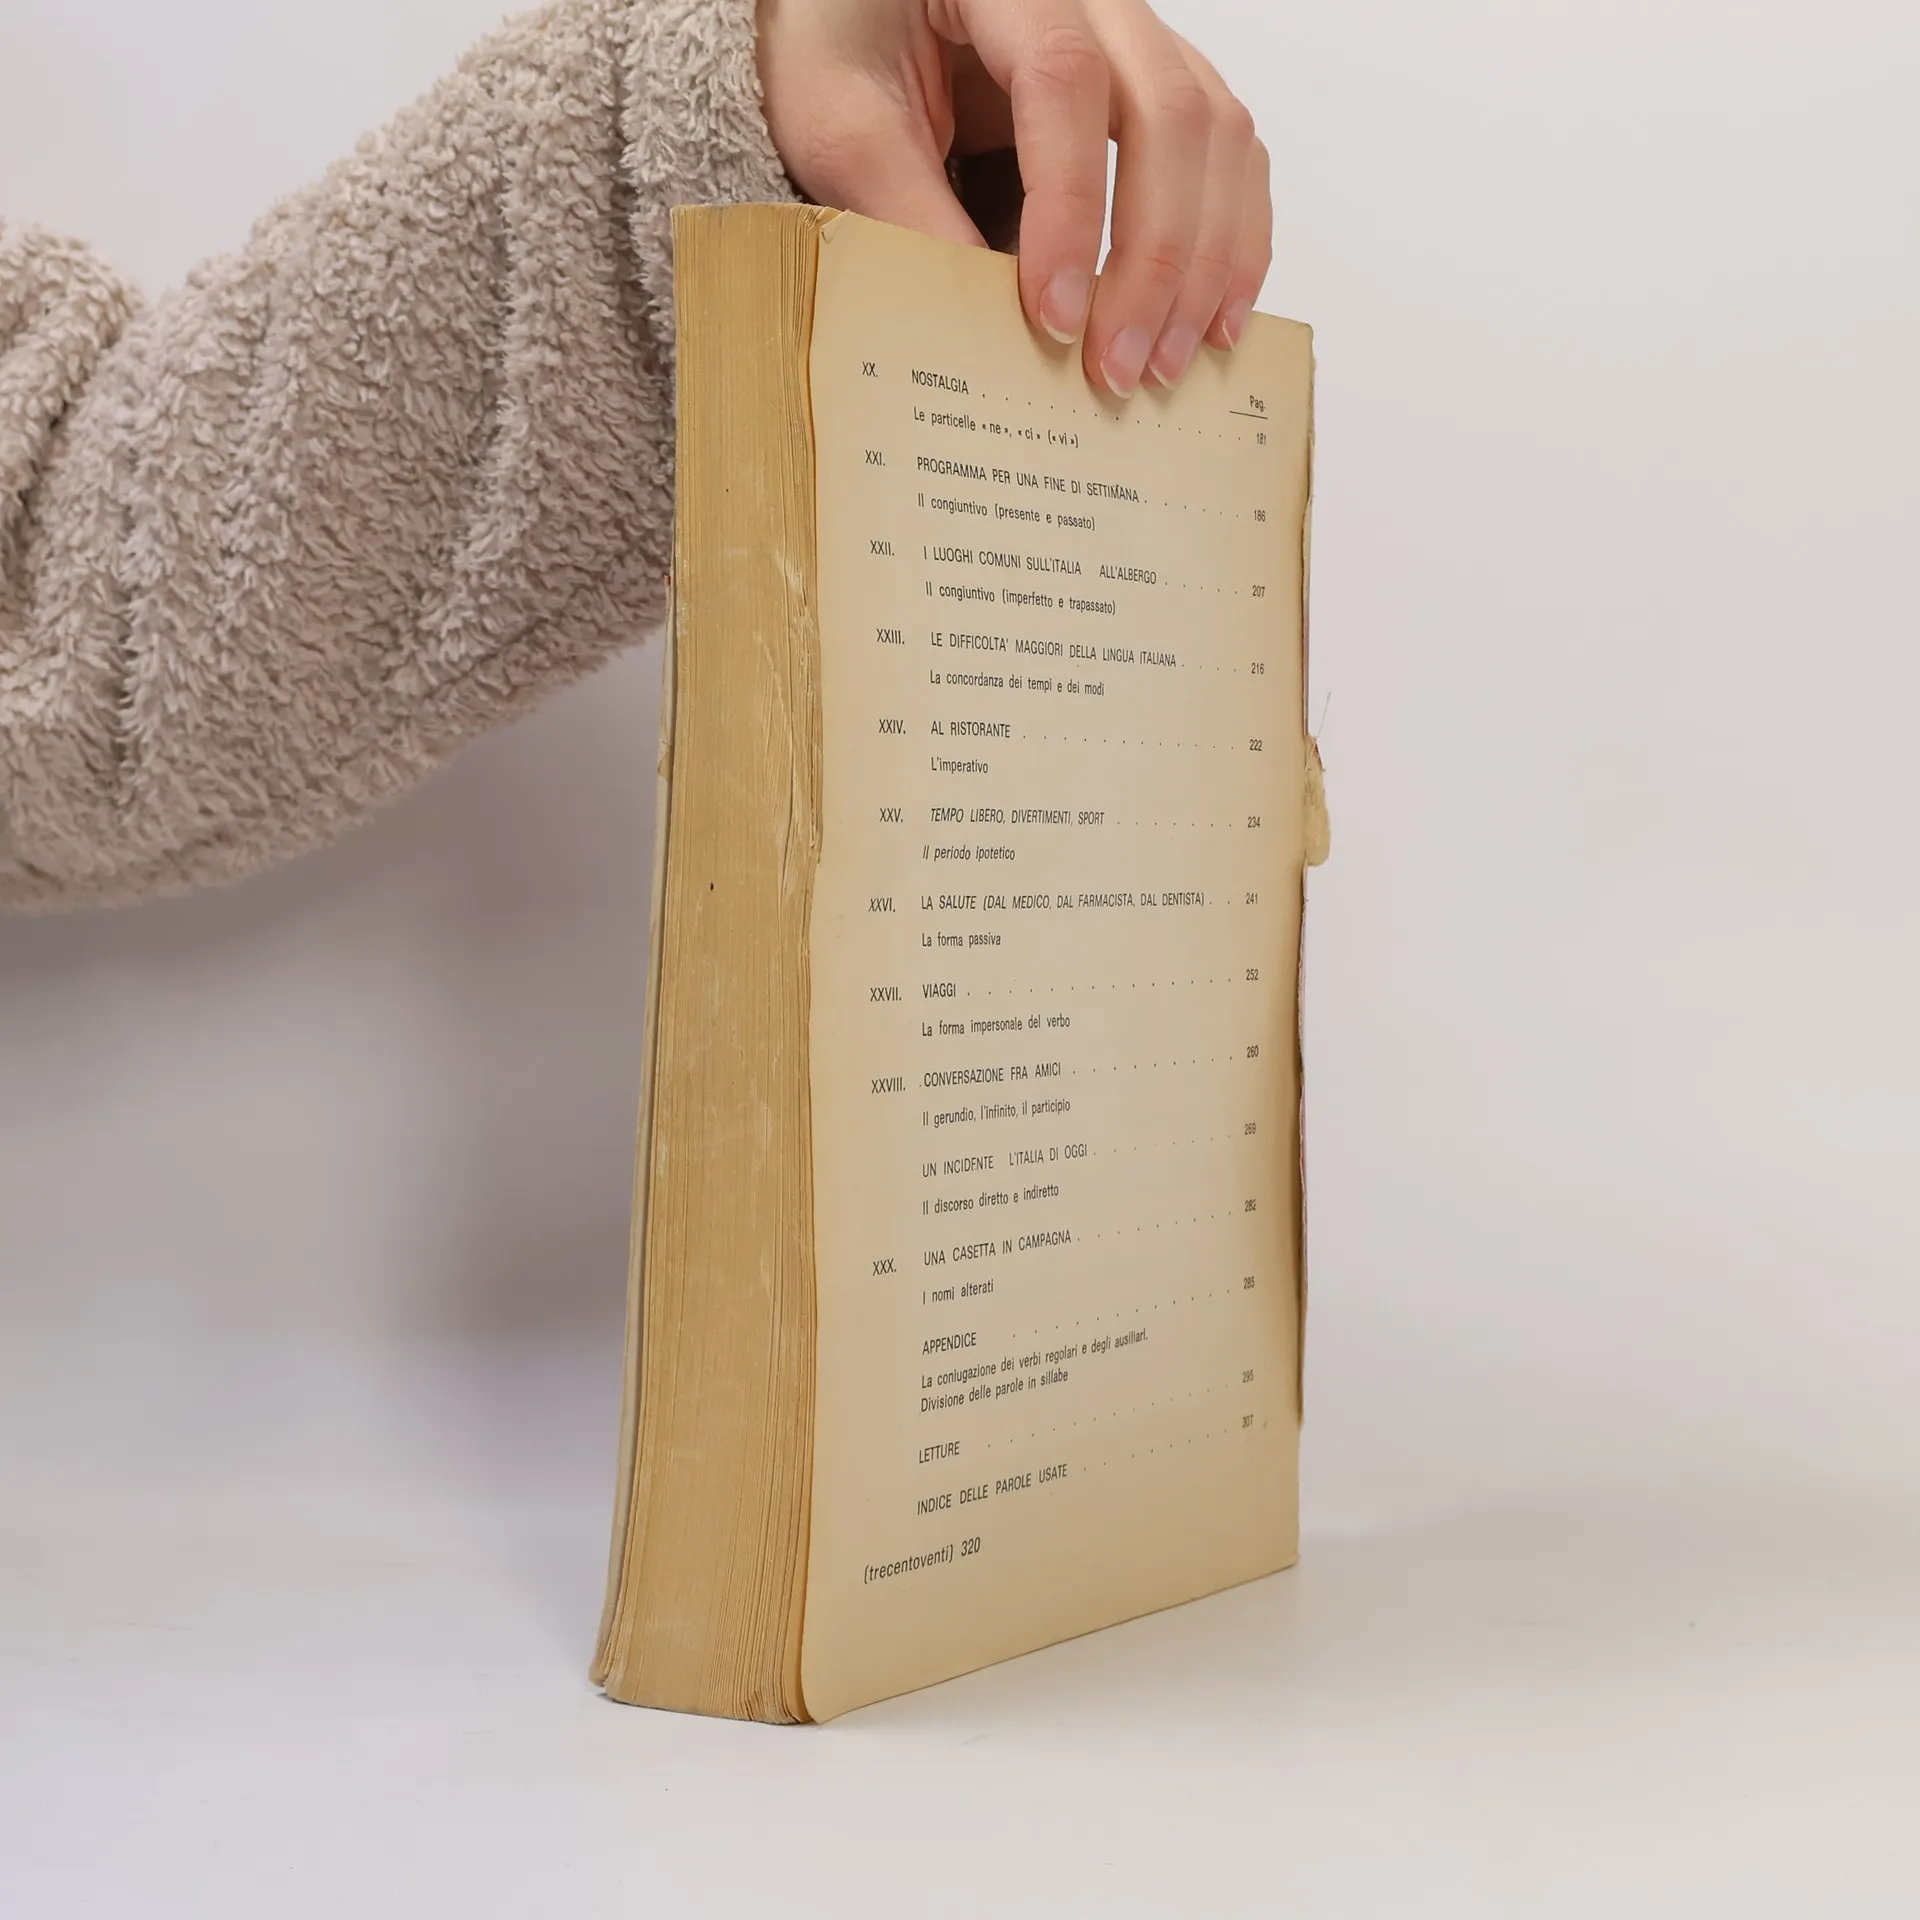 Pag.
XX. NOSTALGIA . . . . . . . . . . . . 181
Le particelle « ne », « ci » (« vi »)
XXI. PROGRAMMA PER UNA FINE DI SETTIMANA . . . . . 186
Il congiuntivo (presente e passato)
XXII. I LUOGHI COMUNI SULL'ITALIA ALL'ALBERGO . . . . . 207
Il congiuntivo (imperfetto e trapassato)
XXIII. LE DIFFICOLTA' MAGGIORI DELLA LINGUA ITALIANA . . . . 216
La concordanza dei tempi e dei modi
XXIV. AL RISTORANTE . . . . . . . . . . . 222
L'imperativo
XXV. TEMPO LIBERO, DIVERTIMENTI, SPORT . . . . . . . 234
Il periodo ipotetico
XXVI. LA SALUTE (DAL MEDICO, DAL FARMACISTA, DAL DENTISTA) . . 241
La forma passiva
XXVII. VIAGGI . . . . . . . . . . . . . 252
La forma impersonale del verbo
XXVIII. CONVERSAZIONE FRA AMICI . . . . . . . . . 260
Il gerundio, l'infinito, il participio
UN INCIDENTE L'ITALIA DI OGGI . . . . . . . . 269
Il discorso diretto e indiretto
XXX. UNA CASETTA IN CAMPAGNA . . . . . . . . 282
I nomi alterati
APPENDICE . . . . . . . . . . . 285
La coniugazione dei verbi regolari e degli ausiliari.
Divisione delle parole in sillabe
LETTURE . . . . . . . . . . . . 295
INDICE DELLE PAROLE USATE . . . . . . . . 307
(trecentoventi) 320